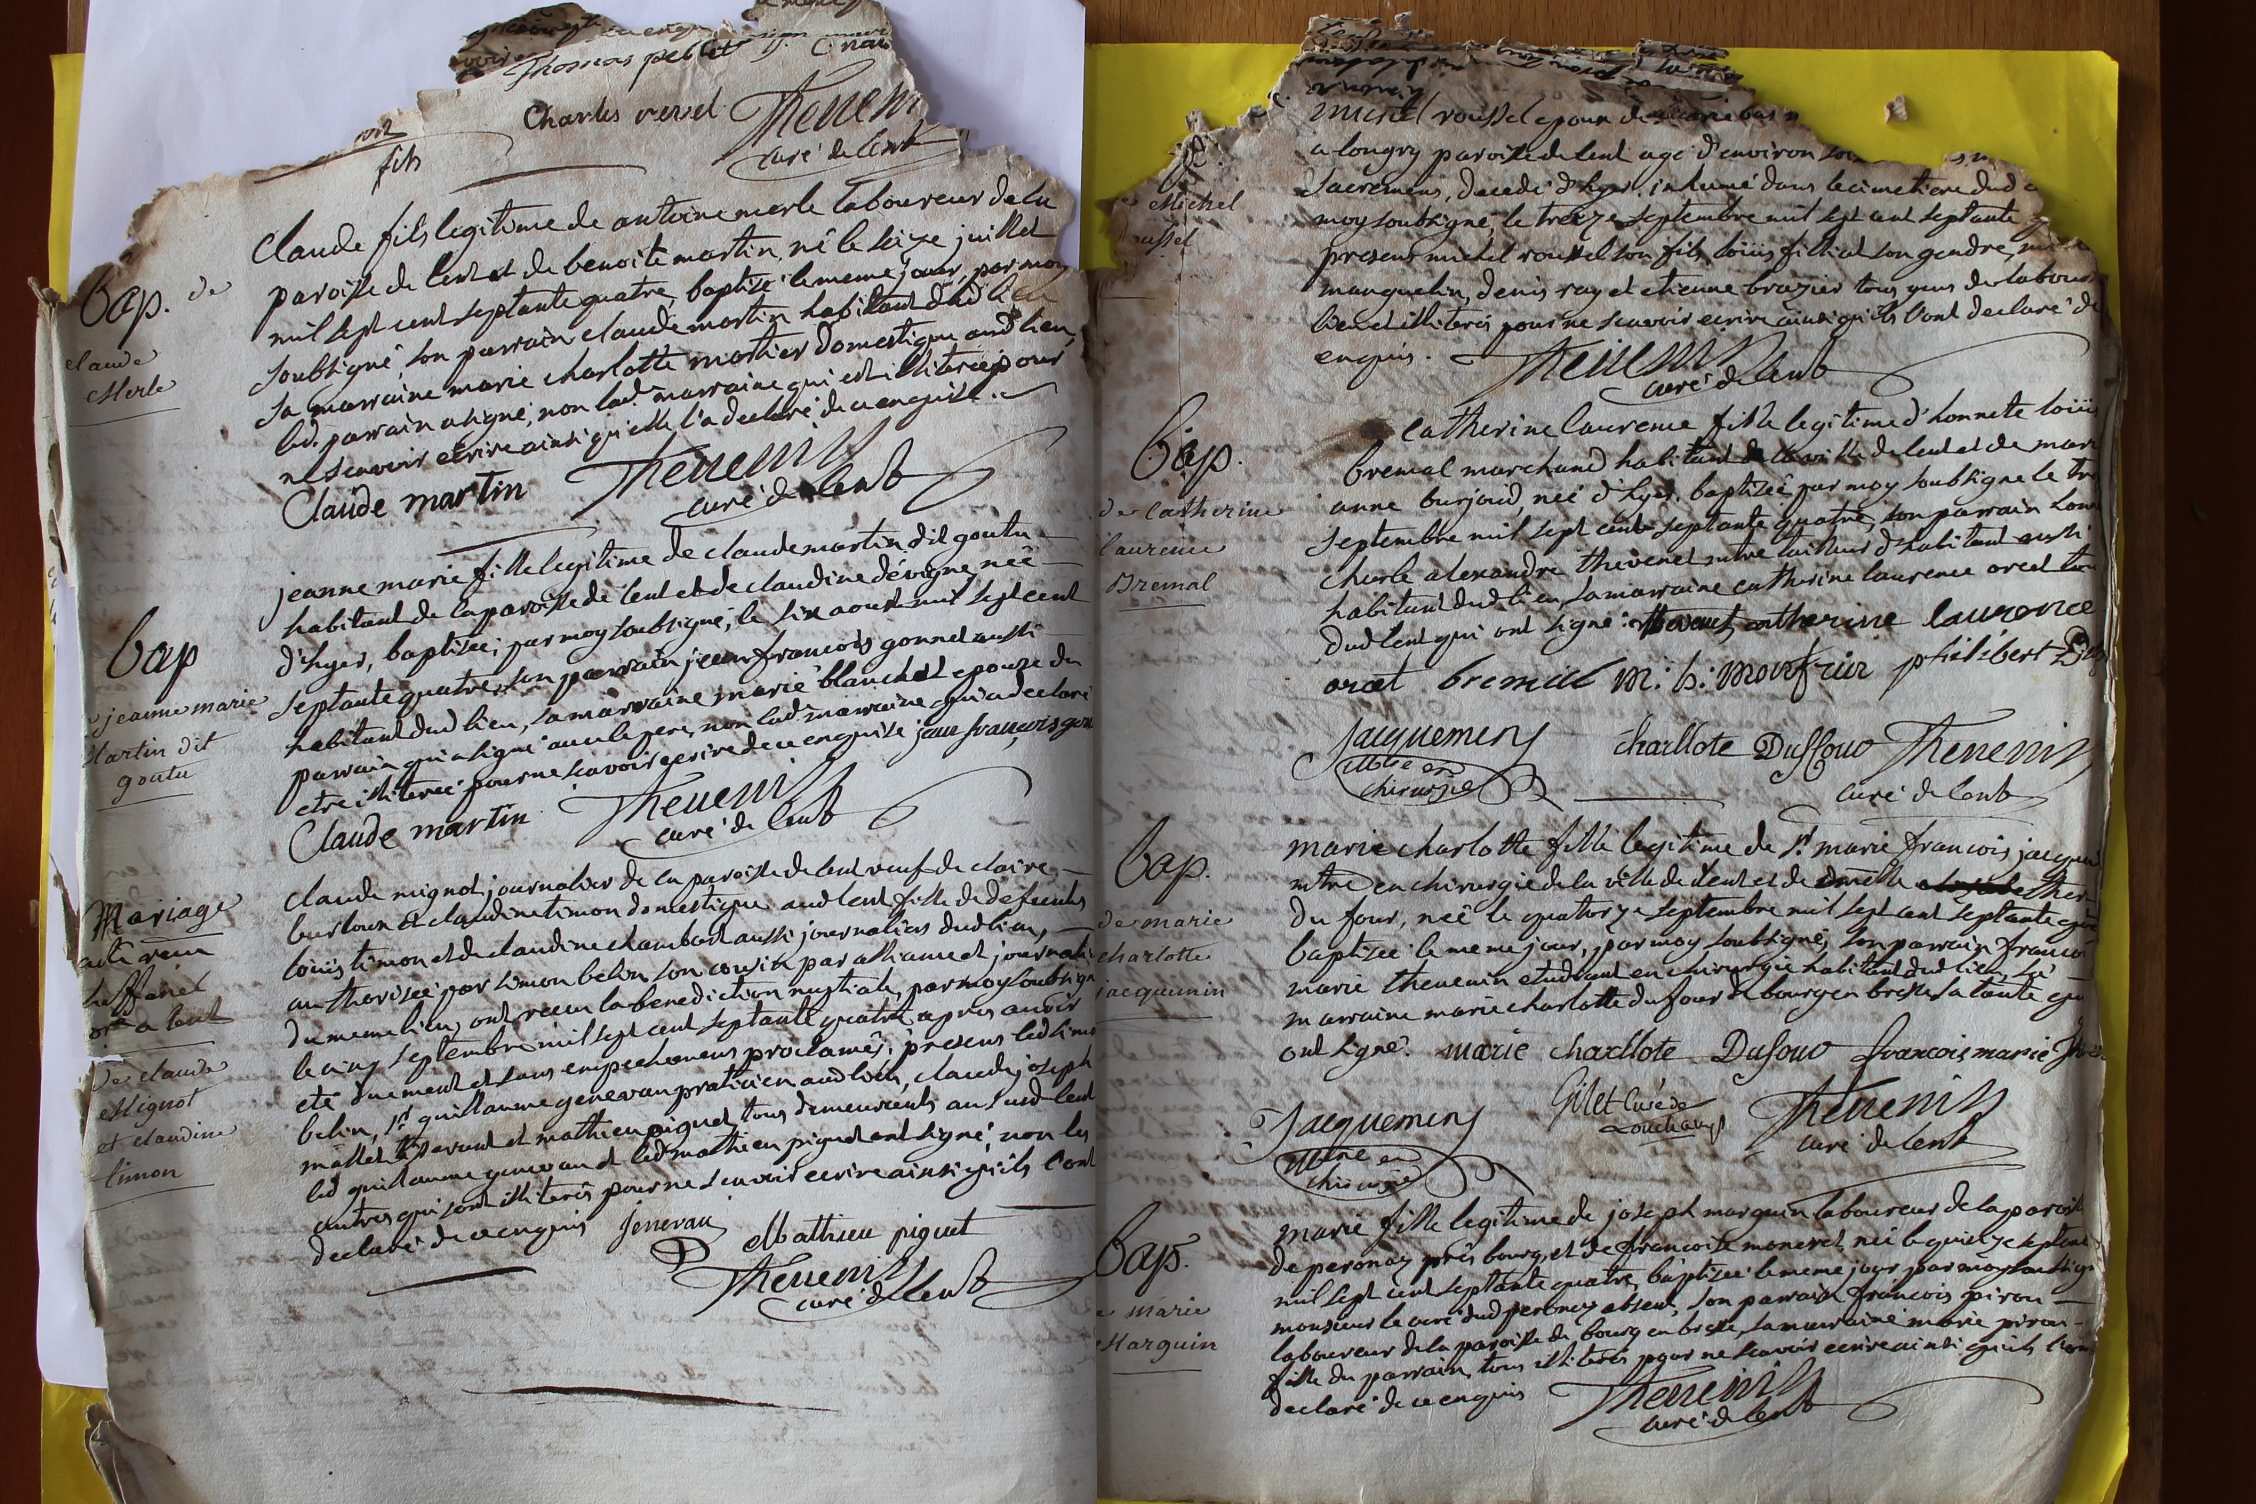 Thomas pellet
Charles verd Thevenin
curé de lent
fils
Bap. de
claude
Merle
Claude fils legitime de antoine merle laboureur de la
paroisse de lent et de benoite martin, né le seize juillet
mil sept cent septante quatre, baptisé le meme jour, par moy
soubsigné, son parrain claude martin habitant dud lieu
sa marraine marie charlotte mortier domestique aud lieu,
led. parrain a signé, non lad. marraine qui est illiterée pour
ne scavoir ecrire ainsi qu'elle l'a declaré de ce enquise.
Claude martin Thevenin
curé de lent
Bap
jeanne marie
Martin dit
goutu
jeanne marie fille legitime de claude martin dit goutu
habitant de la paroisse de lent et de claudine dévigne, née
d'hyer, baptisée, par moy soubsigné, le six aoust mil sept cent
septante quatre, son parrain jean francois gonnet aussi
habitant dud lieu, sa marraine marie blanchet epouze du
parrain qui a signé avec le pere, non lad. marraine qui a declaré
etre illiterée pour ne scavoir ecrire de ce enquise jean françois gon
Claude martin Thevenin
curé de lent
Mariage
de claude
Mignot
et claudine
timon
claude mignot journalier de la paroisse de lent veuf de claire
burloux et claudine timon domestique aud lent fille de defunts
loüis timon et de claudine chambard aussi journaliers dud lieu,
authorisée par simon belin son cousin par alliance et journali
du meme lieu, ont recu la benediction nuptiale, par moy soubsign
le cinq septembre mil sept cent septante quatre apres avoir
eté duement et sans empechemens proclamés; presens led simo
belin, Sr guillaume genevan praticien aud lieu, claude joseph
mallet et mathieu piguet tous demeurants au susd lent
led guillaume genevan et led mathieu piguet ont signé, non les
autres qui sont illiterés pour ne scavoir ecrire ainsi qu'ils l'ont
declaré de ce enquis Jenevan Mathieu piguet
Thevenin
curé de lent
Michel
michel roussel epoux de
a longry paroisse de lent agé d'environ
sacremens, decedé d'hyer, inhumé dans le cimetiere dud
moy soubsigné, le treize septembre mil sept cent septante
presens michel roussel son fils, loüis filliat son gendre,
manguelin, denis ray et etienne brazier tous gens de labour
lieu et illiterés pour ne scavoir ecrire ainsi qu'ils l'ont declaré de
enquis. Thevenin
curé de lent
Bap.
de catherine
laurence
Bremal
Catherine laurence fille legitime d'honnete loüis
bremal marchand habitant de la ville de lent et de mari
anne burjoud, née d'hyer, baptisée par moy soubsigné le tre
septembre mil sept cent septante quatre, son parrain hon
charle alexandre thevenet mtre tailleur d'habitant aussi
habitant dud lieu, sa marraine catherine laurence orcet
dud lent qui ont signé. thevenet catherine laurence
orcet bremal philibert
Jacquemin charllote Dufour Thevenin
Mtre en
chirurgie curé de lent
Bap.
de marie
charlotte
jacquemin
marie charlotte fille legitime de Sr marie francois jacque
mtre en chirurgie de la ville de lent et de dmelle
du four, née le quatorze septembre mil sept cent septante
baptisée le meme jour, par moy soubsigné, son parrain francois
marie thevenin etudiant en chirurgie habitant dud lieu, sa
marraine marie charlotte du four de bourg en bresse sa tante qui
ont signé. marie charllote Dufour francois marie
Jacquemin Gilet Curé de Thevenin
Mtre en
chirurgie curé de lent
Bap.
marie
Marguin
marie fille legitime de joseph marguin laboureur de la paroisse
de peronaz près bourg, et de francoise moneret, née le quinze septem
mil sept cent septante quatre, baptisée le meme jour par moy soubsign
monsieur le curé dud peronaz absent, son parrain francois piron
laboureur de la paroisse de bourg en bresse, sa marraine marie piron
fille du parrain, tous illiterés pour ne scavoir ecrire ainsi qu'ils l'ont
declaré de ce enquis Thevenin
curé de lent